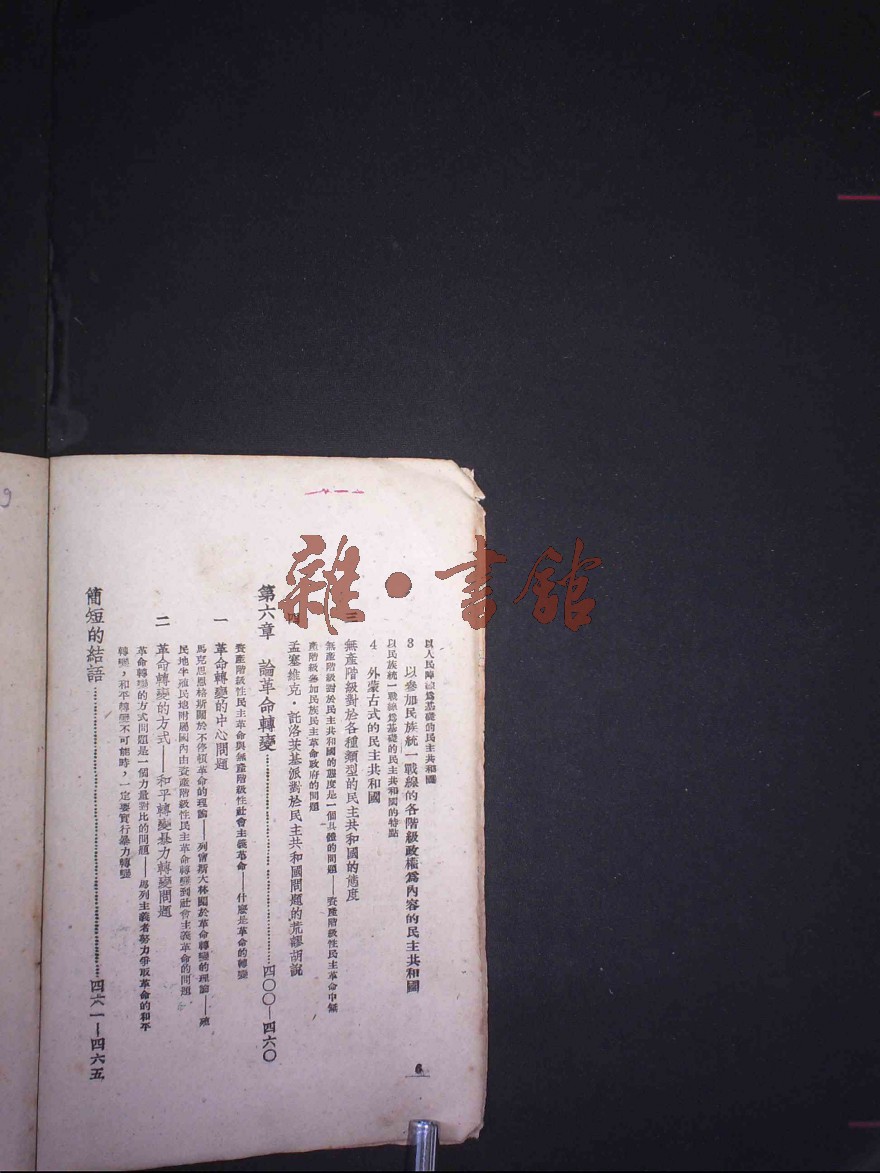 以人民陣線爲基礎的民主共和國
3 以參加民族統一戰線的各階級政權爲內容的民主共和國
以民族統一戰線爲基礎的民主共和國的特點
4 外蒙古式的民主共和國
三 無產階級對於各種類型的民主共和國的態度
無產階級對於民主共和國的態度是一個具體的問題——資產階級性民主革命中無
產階級參加民族民主革命政府的問題
四 孟塞維克·託洛茨基派對於民主共和國問題的荒謬胡說
第六章 論革命轉變…………四〇〇—四六〇
資產階級性民主革命與無產階級性社會主義革命——什麼是革命的轉變
一 革命轉變的中心問題
馬克思恩格斯關於不停頓革命的理論——列寧斯大林關於革命轉變的理論——殖
民地半殖民地附屬國內由資產階級性民主革命轉變到社會主義革命的問題
二 革命轉變的方式——和平轉變暴力轉變問題
革命轉變的方式問題是一個力量對比的問題——馬列主義者努力爭取革命的和平
轉變,和平轉變不可能時,一定要實行暴力轉變
簡短的結語…………四六一—四六五
6
9
雜·書館